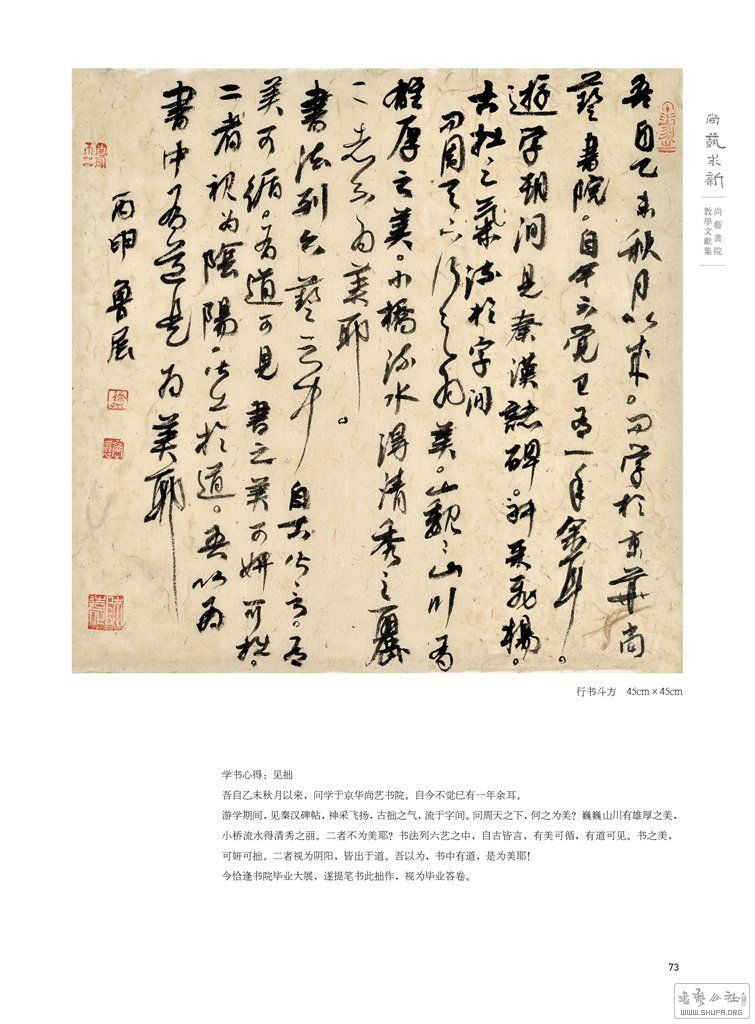 吾自乙未秋月以来。问学於京華尚
藝書院。自今不觉已有一年余耳。
遊学期间见秦漢誌碑。神采飛揚。
古拙之氣流於字间
问周天下何之为美。巍巍山川有
雄厚之美。小橋流水得清秀之麗
二者不为美耶。
書法列六藝之中自古皆言。有
美可循。有道可见書之美可妍可拙。
二者视为陰陽。皆出於道。吾以为
書中有道是为美耶
丙申鲁展
尚藝求新
尚藝書院
教學文獻集
行书斗方 45cm×45cm
学书心得：见拙
吾自乙未秋月以来，问学于京华尚艺书院。自今不觉已有一年余耳。
游学期间，见秦汉碑帖，神采飞扬，古拙之气，流于字间。问周天之下，何之为美？巍巍山川有雄厚之美，
小桥流水得清秀之丽。二者不为美耶？书法列六艺之中，自古皆言，有美可循，有道可见。书之美，
可妍可拙。二者视为阴阳，皆出于道。吾以为，书中有道，是为美耶！
今恰逢书院毕业大展，遂提笔书此拙作，视为毕业答卷。
73
書藝公社
WWW.SHUFA.ORG